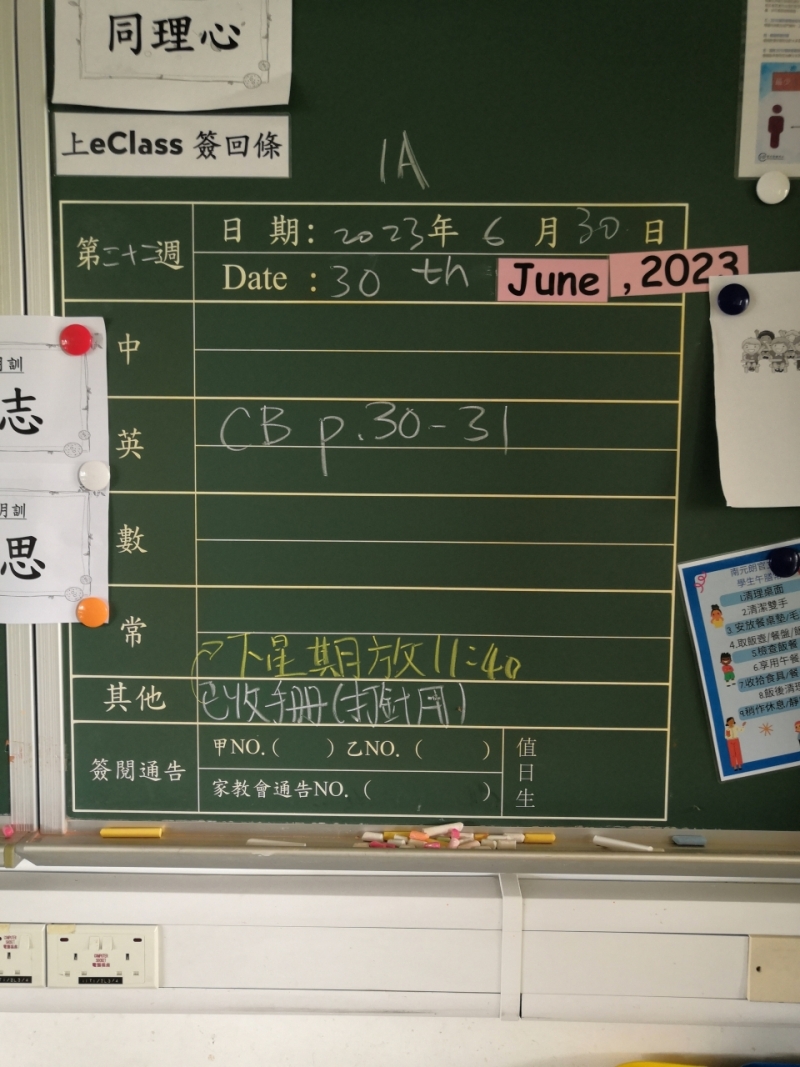 同理心
上eClass 簽回條
1A
第二十二週
日 期: 2023年 6 月 30 日
Date : 30 th June , 2023
中
英
CB p.30-31
數
常
下星期放11:40
其他
已收手冊(打針用)
簽閱通告
甲NO.( ) 乙NO. ( )
家教會通告NO. ( )
值日生
月訓
志
月訓
思
學生午膳
1清理桌面
2清潔雙手
3.安放餐桌墊/毛
4.取飯壺/餐盤/
5檢查飯餐
6.享用午餐
7.收拾食具/餐
8飯後清理
9.稍作休息/靜